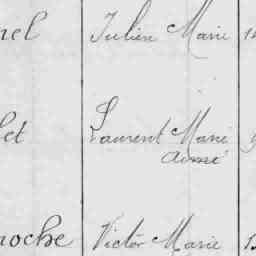 nel Julien Marie 1
et Laurent Marie
Aimé
roche Victor Marie 1